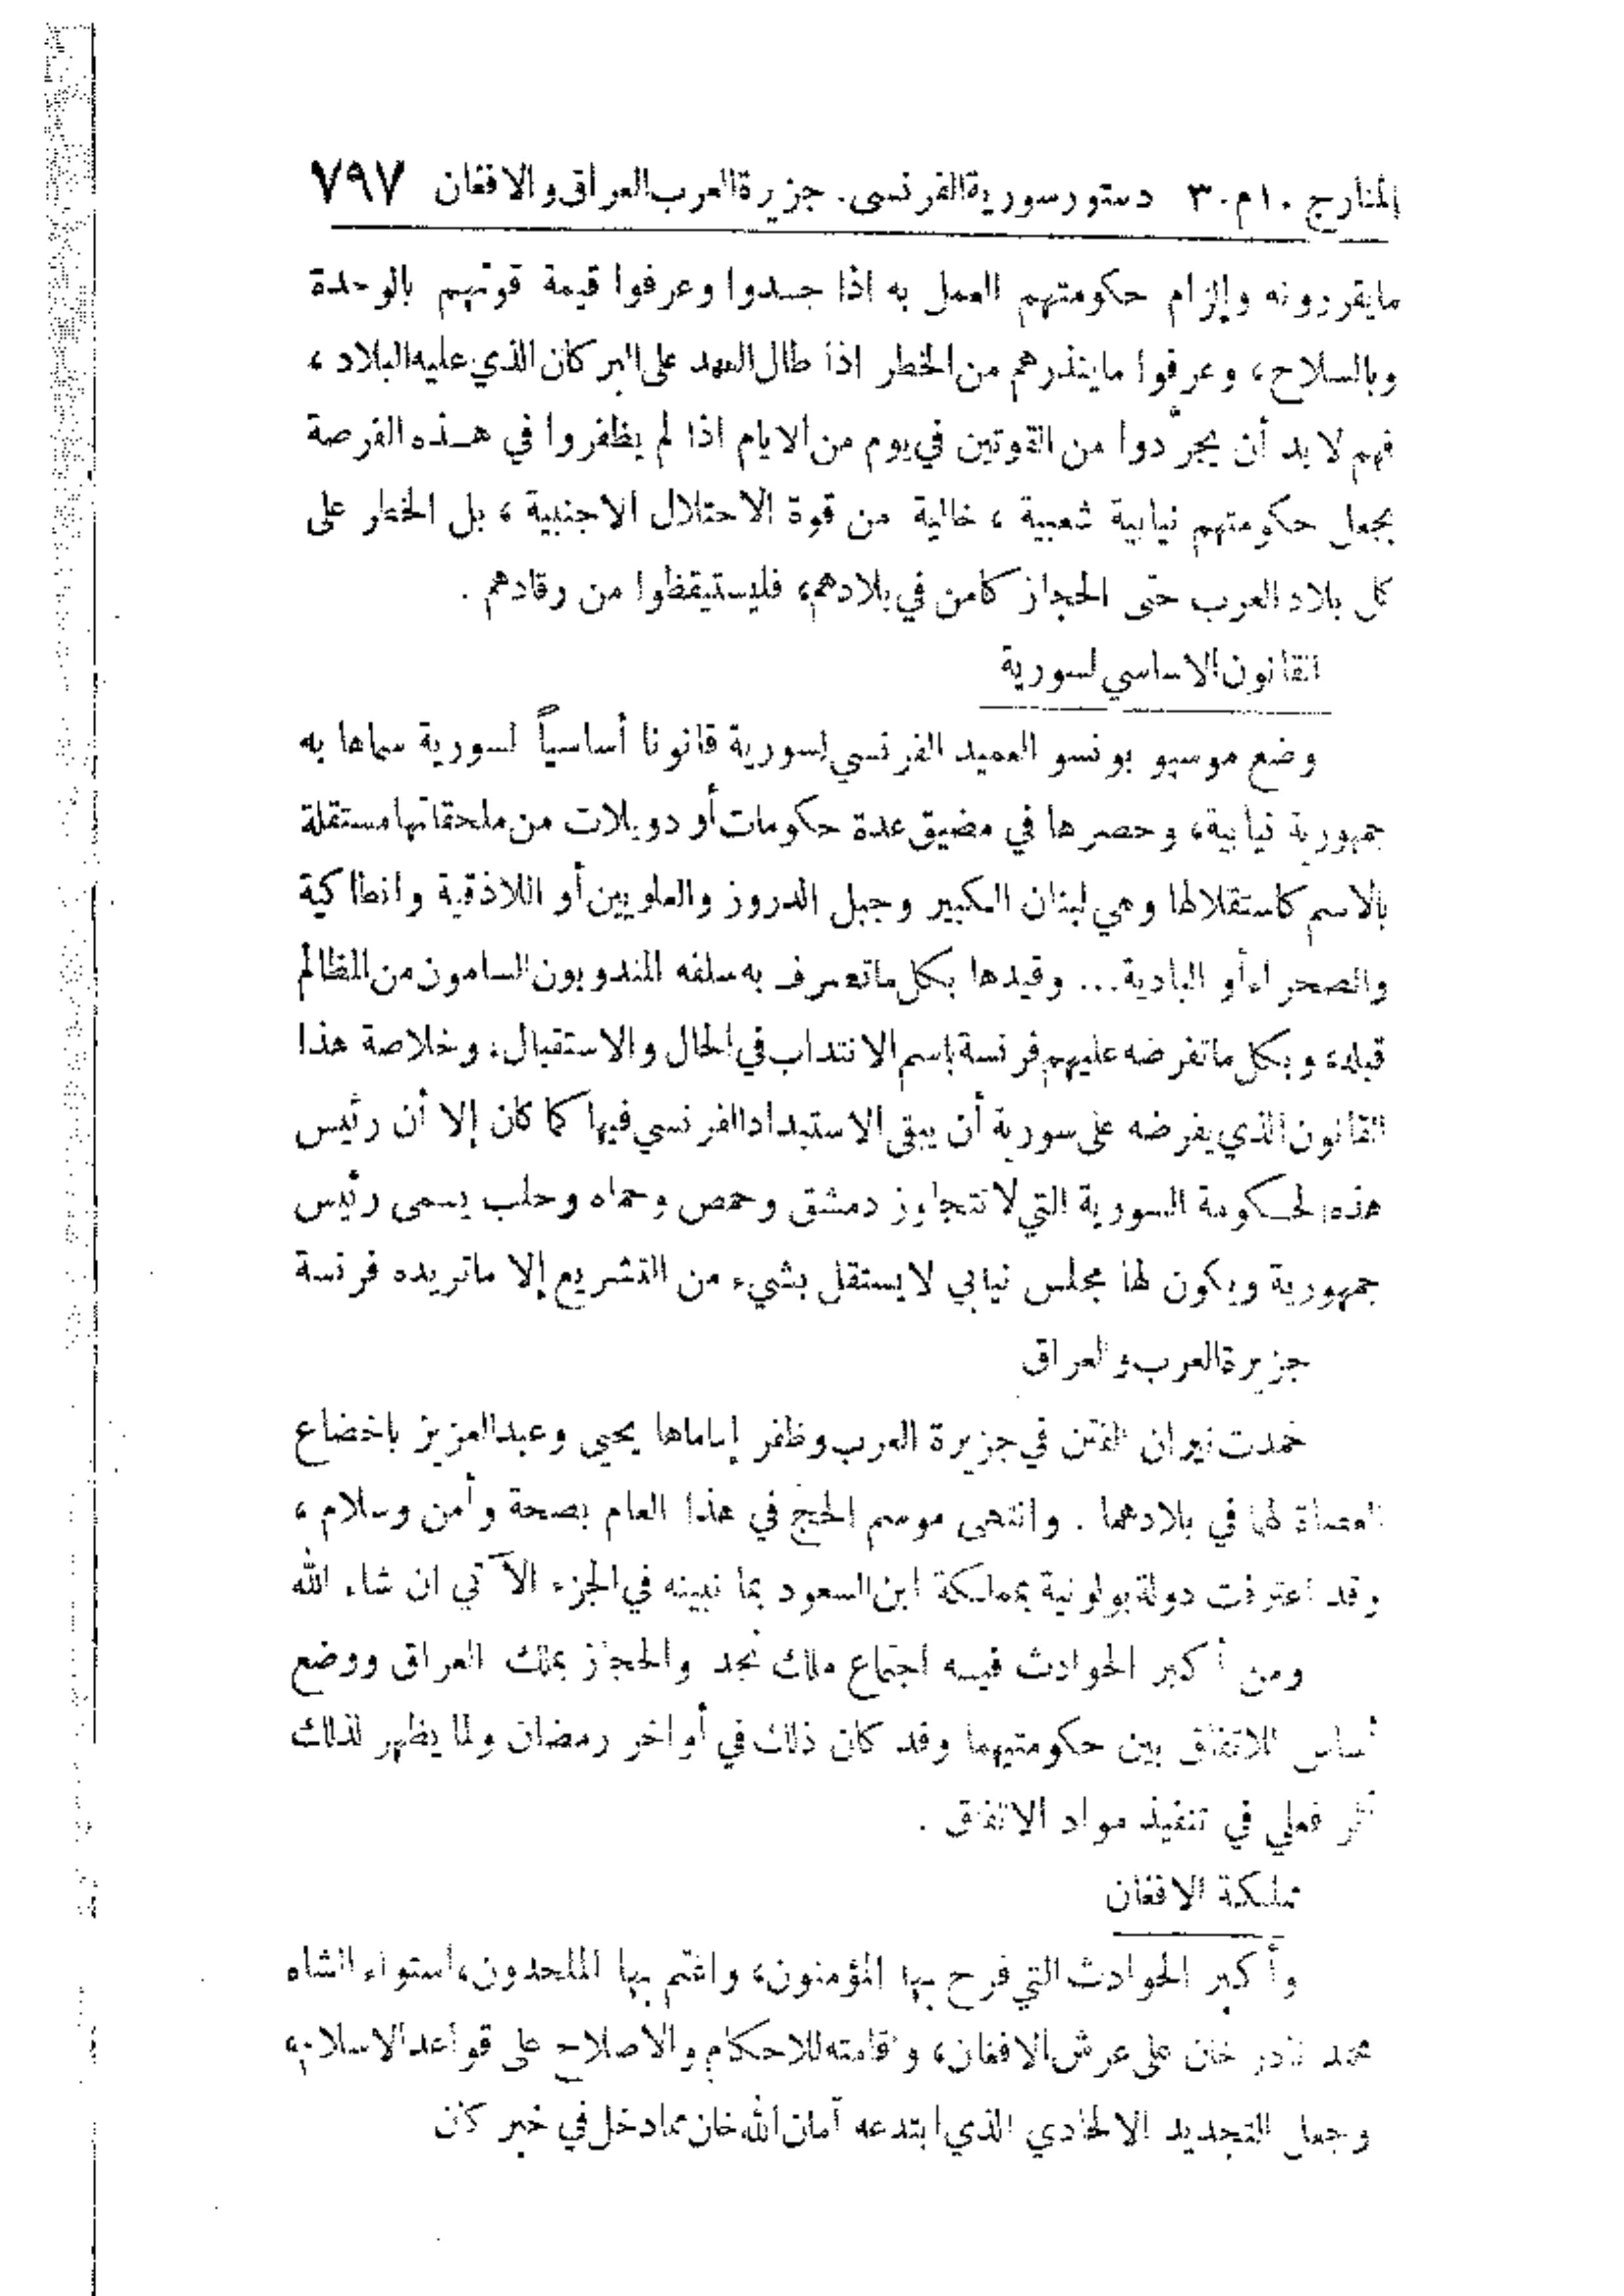 المنار ج ١٠ م ٣٠ دستور سورية الفرنسي. جزيرة العرب العراق والافغان ٧٩٧
مايقررونه وإلزام حكومتهم العمل به اذا جــدوا وعرفوا قيمة قوتهم بالوحدة
وبالسلاح، وعرفوا ماينذرهم من الخطر اذا طال العهد على البركان الذي عليه البلاد ،
فهم لا بد أن يجرّدوا من القوتين في يوم من الايام اذا لم يظفروا في هــذه الفرصة
بجعل حكومتهم نيابية شعبية ، خالية من قوة الاحتلال الاجنبية ، بل الخطر على
كل بلاد العرب حتى الحجاز كامن في بلادهم، فليستيقظوا من رقادهم .
القانون الاساسي لسورية
وضع موسيو بونسو العميد الفرنسي لسورية قانونا أساسياً لسورية سماها به
جمهورية نيابية، وحصرها في مضيق عدة حكومات أو دويلات من ملحقاتها مستقلة
بالاسم كاستقلالها وهي لبنان الكبير وجبل الدروز والعلويين أو اللاذقية وانطاكية
والصحراء أو البادية... وقيدها بكل ماتصرف به سلفه المندوبون السامون من المظالم
قبله، وبكل ماتفرضه عليهم فرنسة باسم الانتداب في الحال والاستقبال، وخلاصة هذا
القانون الذي يفرضه على سورية أن يبقى الاستبداد الفرنسي فيها كما كان إلا أن رئيس
هذه الحكومة السورية التي لاتتجاوز دمشق وحمص وحماه وحلب يسمى رئيس
جمهورية ويكون لها مجلس نيابي لايستقل بشيء من التشريع إلا ماتريده فرنسة
جزيرة العرب والعراق
خمدت نيران الفتن في جزيرة العرب وظفر إماماها يحيى وعبدالعزيز باخضاع
العصاة لها في بلادهما . وانتهى موسم الحج في هذا العام بصحة وأمن وسلام ،
وقد اعترفت دولة بولونية بمملكة ابن السعود بما نبينه في الجزء الآتي ان شاء الله
ومن أكبر الحوادث فيــه اجتماع ملك نجد والحجاز بملك العراق ووضع
أساس للاتفاق بين حكومتيهما وقد كان ذلك في أواخر رمضان ولما يظهر لذلك
أثر فعلي في تنفيذ مواد الاتفاق .
مملكة الافغان
وأكبر الحوادث التي فرح بها المؤمنون، واغتم بها الملحدون، استواء الشاه
محمد نادر خان على عرش الافغان، واقامته للاحكام والاصلاح على قواعد الاسلام،
وجعل التجديد الالحادي الذي ابتدعه أمان الله خان مما دخل في خبر كان